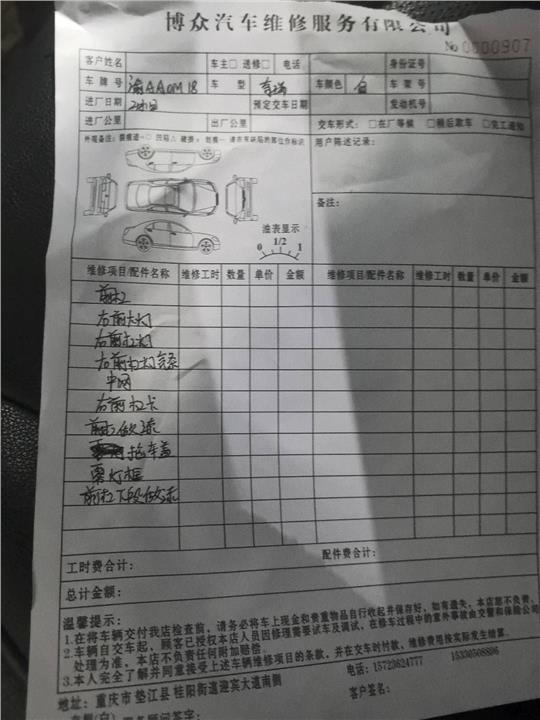 博众汽车维修服务有限公司
No 0000907
客户姓名 车主□ 送修□ 电话 身份证号
车牌号 渝AA0M18 车型 奇瑞 车颜色 白 车架号
进厂日期 预定交车日期 发动机号
进厂公里 出厂公里 交车形式：□在厂等候 □稍后取车 □完工通知
用户陈述记录：
备注：
油表显示
0 1/2 1
维修项目/配件名称 维修工时 数量 单价 金额 维修项目/配件名称 维修工时 数量 单价 金额
前杠
右前大灯
右前杠灯
右前杠灯亮条
中网
右前杠卡
前杠
拖车盖
雾灯框
前杠下段
工时费合计： 配件费合计：
总计金额：
温馨提示：
1.在将车辆交付我店检查前，请务必将车上现金和贵重物品自行收起并保存好，如有遗失，本店恕不负责。
2.车辆自交车起，顾客已授权本店人员因修理需要试车及调试，在修车过程中的意外事故由交警和保险公司
处理为准，本店不负责任何附加赔偿。
3.本人完全了解并同意接受上述车辆维修项目的条款，并在交车时付款，维修费用按实际发生结算.
地址：重庆市 垫江县 桂阳街道迎宾大道南侧 电话：15723624777 15330508896
客户签名：